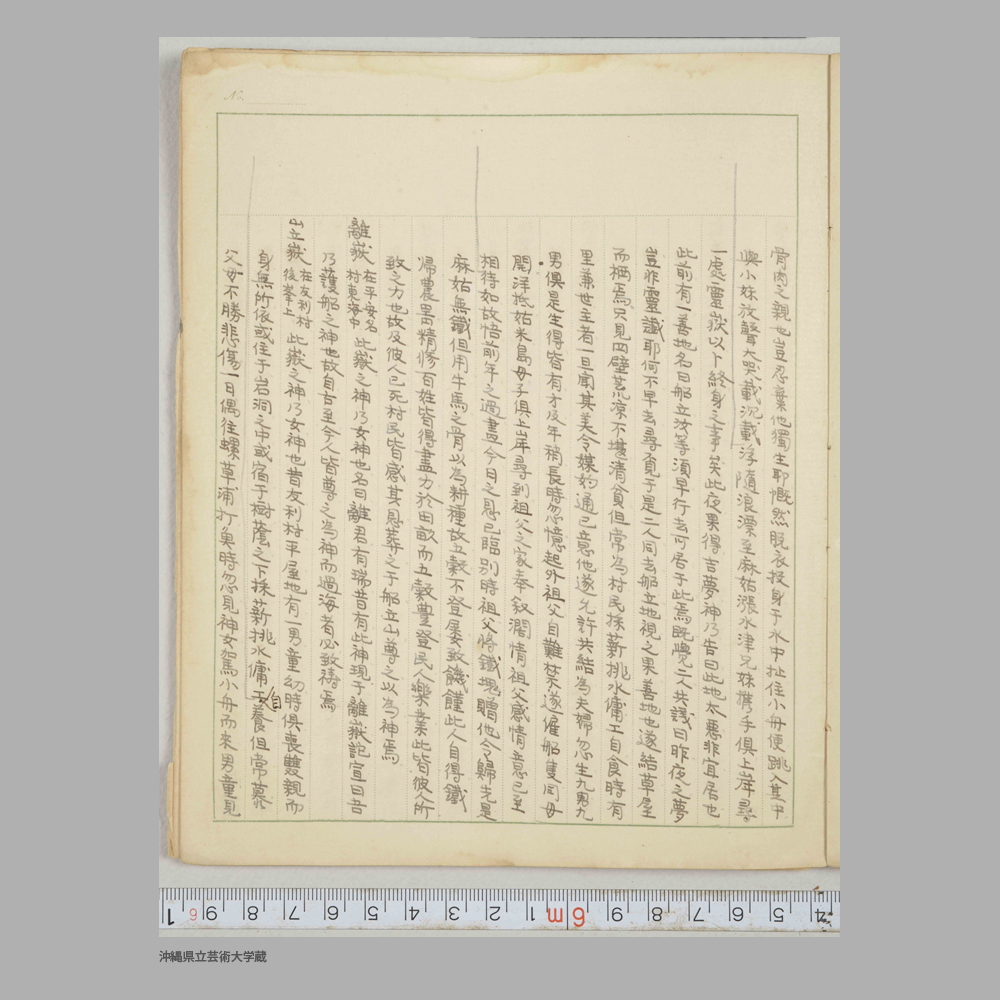 骨肉之親也豈忍棄他獨生耶慨然脱衣投身于水中扯住小舟便跳入其中
與小妹放聲大哭載沉載浮隨浪漂至麻姑漲水津兄妹携手俱上岸尋
一處靈嶽以卜終身之事矣此夜果得吉夢神乃告曰此地太悪非宜居也
此前有一善地名曰船立汝等須早行去可居于此焉既覺二人共議曰昨夜之夢
豈非靈讖耶何不早去尋覓于是二人同去船立地視之果善地也遂結草屋
而栖焉只見四壁荒凉不堪清貧但常為村民採薪挑水傭工自食時有
里兼世主者一旦聞其美令媒妁通已意他遂允許共結為夫婦忽生九男九
男俱是生得皆有才及年稍長時忽憶起外祖父自難禁遂僱船隻同母
開洋抵姑米島母子俱上岸尋到祖父之家奉叙濶情祖父感情意已至
相待如故悟前年之過盡今日之恩已臨別時祖父将鐵塊贈他令歸先是
麻姑無鐵但用牛馬之骨以為耕種故五穀不登屡致饑饉此人自得鐵
帰農器精修百姓皆得盡力於田畝而五穀豊登民人樂業此皆彼人所
致之力也故及彼人已死村民皆感其恩葬之于船立山尊之以為神焉
離嶽 在平安名村東海中 此嶽之神乃女神也名曰離君有瑞昔有此神現于離嶽託宣曰吾
乃護船之神也故自古至今人皆尊之為神而過海者必致禱焉
山立嶽 在友利村後峯上 此嶽之神乃女神也昔友利村平屋地有一男童幼時俱喪雙親而
身無所依或住于岩洞之中或宿于樹蔭之下採薪挑水傭工自養但常慕
父母不勝悲傷一日偶往螺草浦打魚時忽見神女駕小舟而来男童見
沖縄県立芸術大学蔵